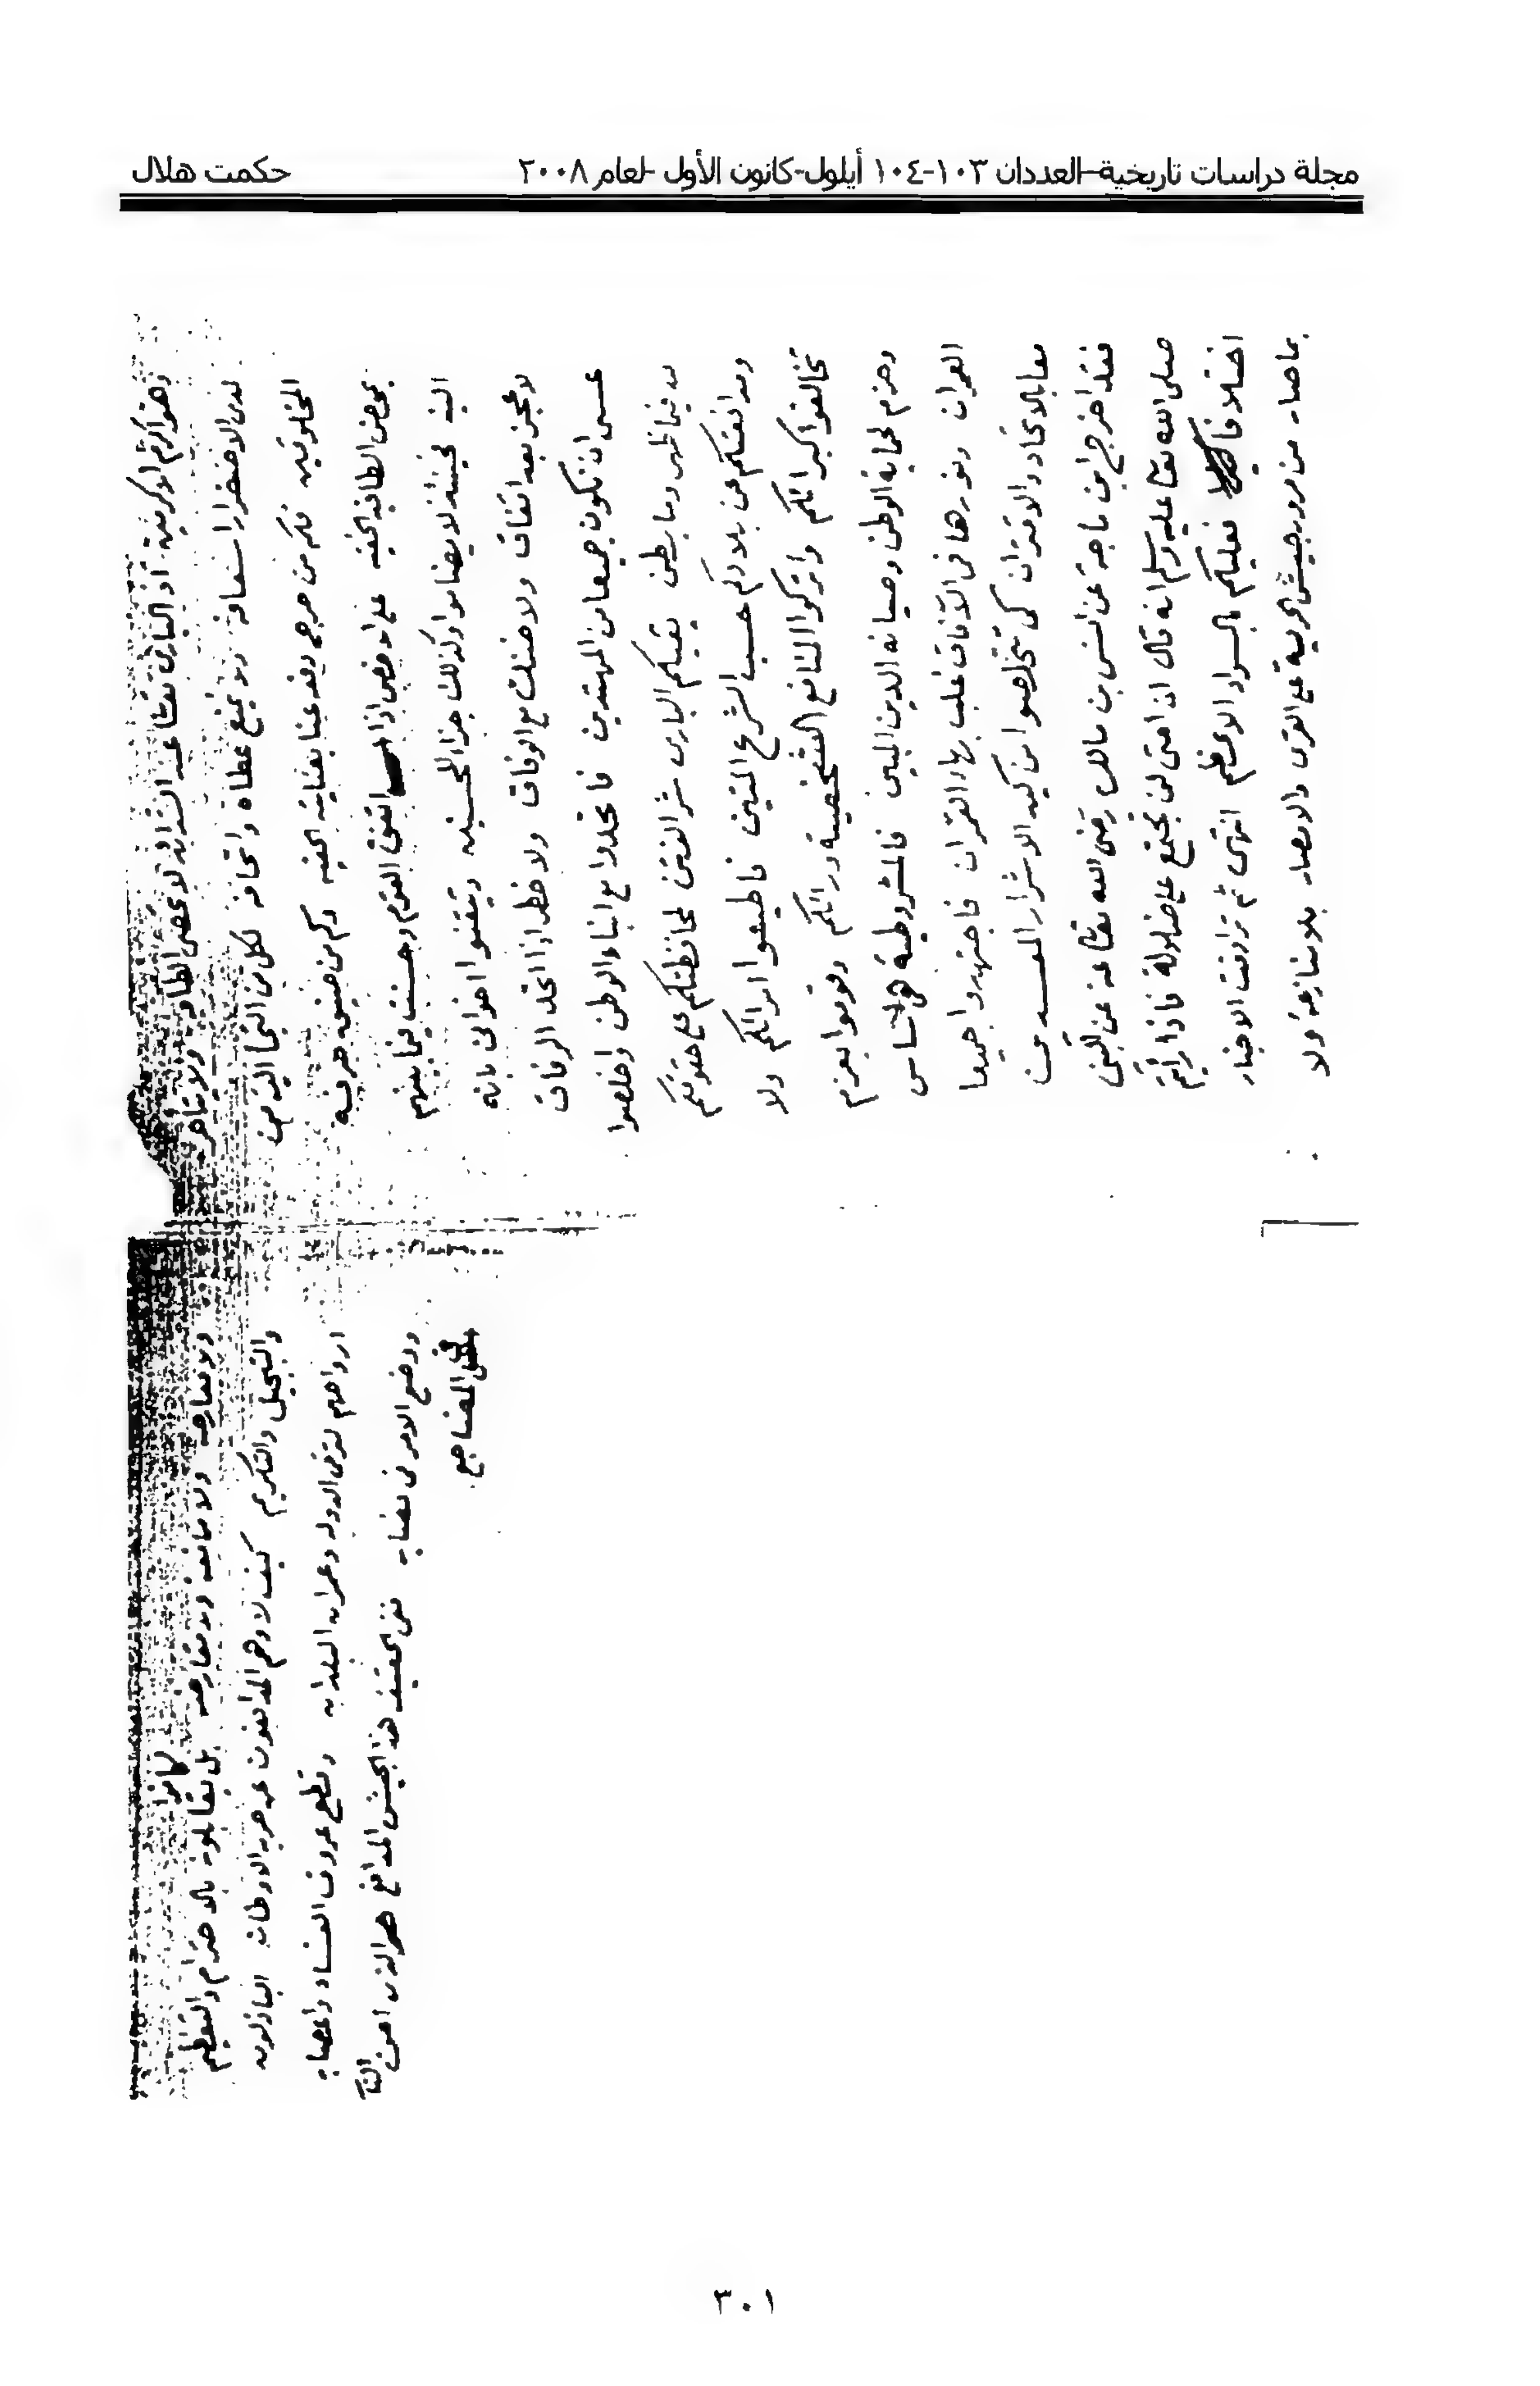 مجلة دراسات تاريخية-العددان ١٠٣-١٠٤ أيلول-كانون الأول -لعام ٢٠٠٨
حكمت هلال
وهو اكرم الاكرمين اذ البارى تعا عند الشدائد لا تحصى الطافه ولا يتأخر
لدى الاضطرار اسعافه ولا يمنع عطاه واتحافه لكل من التجا اليه من
المخلوقين فكم من حرج دفعه عنا بعنايته الخفيه وكم من ضيق صرفه
بمحض الطافه الخفيه على اذا اتفق القوم وحسنت فيما بينهم
النيه فحينئذ لا يضاموا وكذلك جزاء المحسنين وتيقنوا اخوانى بانه
لا عجز بعد اتفاق ولا ضنك مع الوفاق ولا خطر اذا اتحد الرفاق
عسى ان نكون جميعا من المهتدين فاتحدوا مع ابناء الوطن واخلصوا
له فيما ظهر وما بطن يقيكم البارى شر الفتن لمحافظتكم على حقوقكم
ومدافعتكم عن بلادكم حسب الشرع المتين فاطيعوا امرائكم ولا
تخالفوا كبرائكم واتركوا المنافع الشخصية ورائكم وقوموا بعزم
وحزم لحماية الوطن وصيانة الدين المبين فالمشروطية هي اساس
العمران ونورها فى الآفاق غلب بهاء القمران فاجتهدوا جميعا
معا بالاتحاد والاقتران كى تتخلصوا من كيد الاشرار المفسدين
فقد اخرج ابن ماجة عن انس بن مالك رضى الله تعا عنه عن النبى
صلى الله تعا عليه وسلم انه قال ان امتى لن تجتمع على ضلالة فاذا رأيتم
اختلافا فعليكم بالسواد الاعظم انتهى ثم ترادفت الاخبار
بما صار من مرور جيش الحرية على القرى والامصار بلا منازعة ولا
ولا معارضه ولا مانعه بل بالاحترام والتعظيم
والتبجيل والتكريم كيف لا وهم المدافعون عن حرية الاوطان الباذلون
ارواحهم لترقى الدولة وعمران البلدان وقطع عروق الفساد واعصابه
ووضع الامر فى نصابه ففى الحقيقة هذا الجيش المدافع هو الذى امن
المضاجع
٣٠١